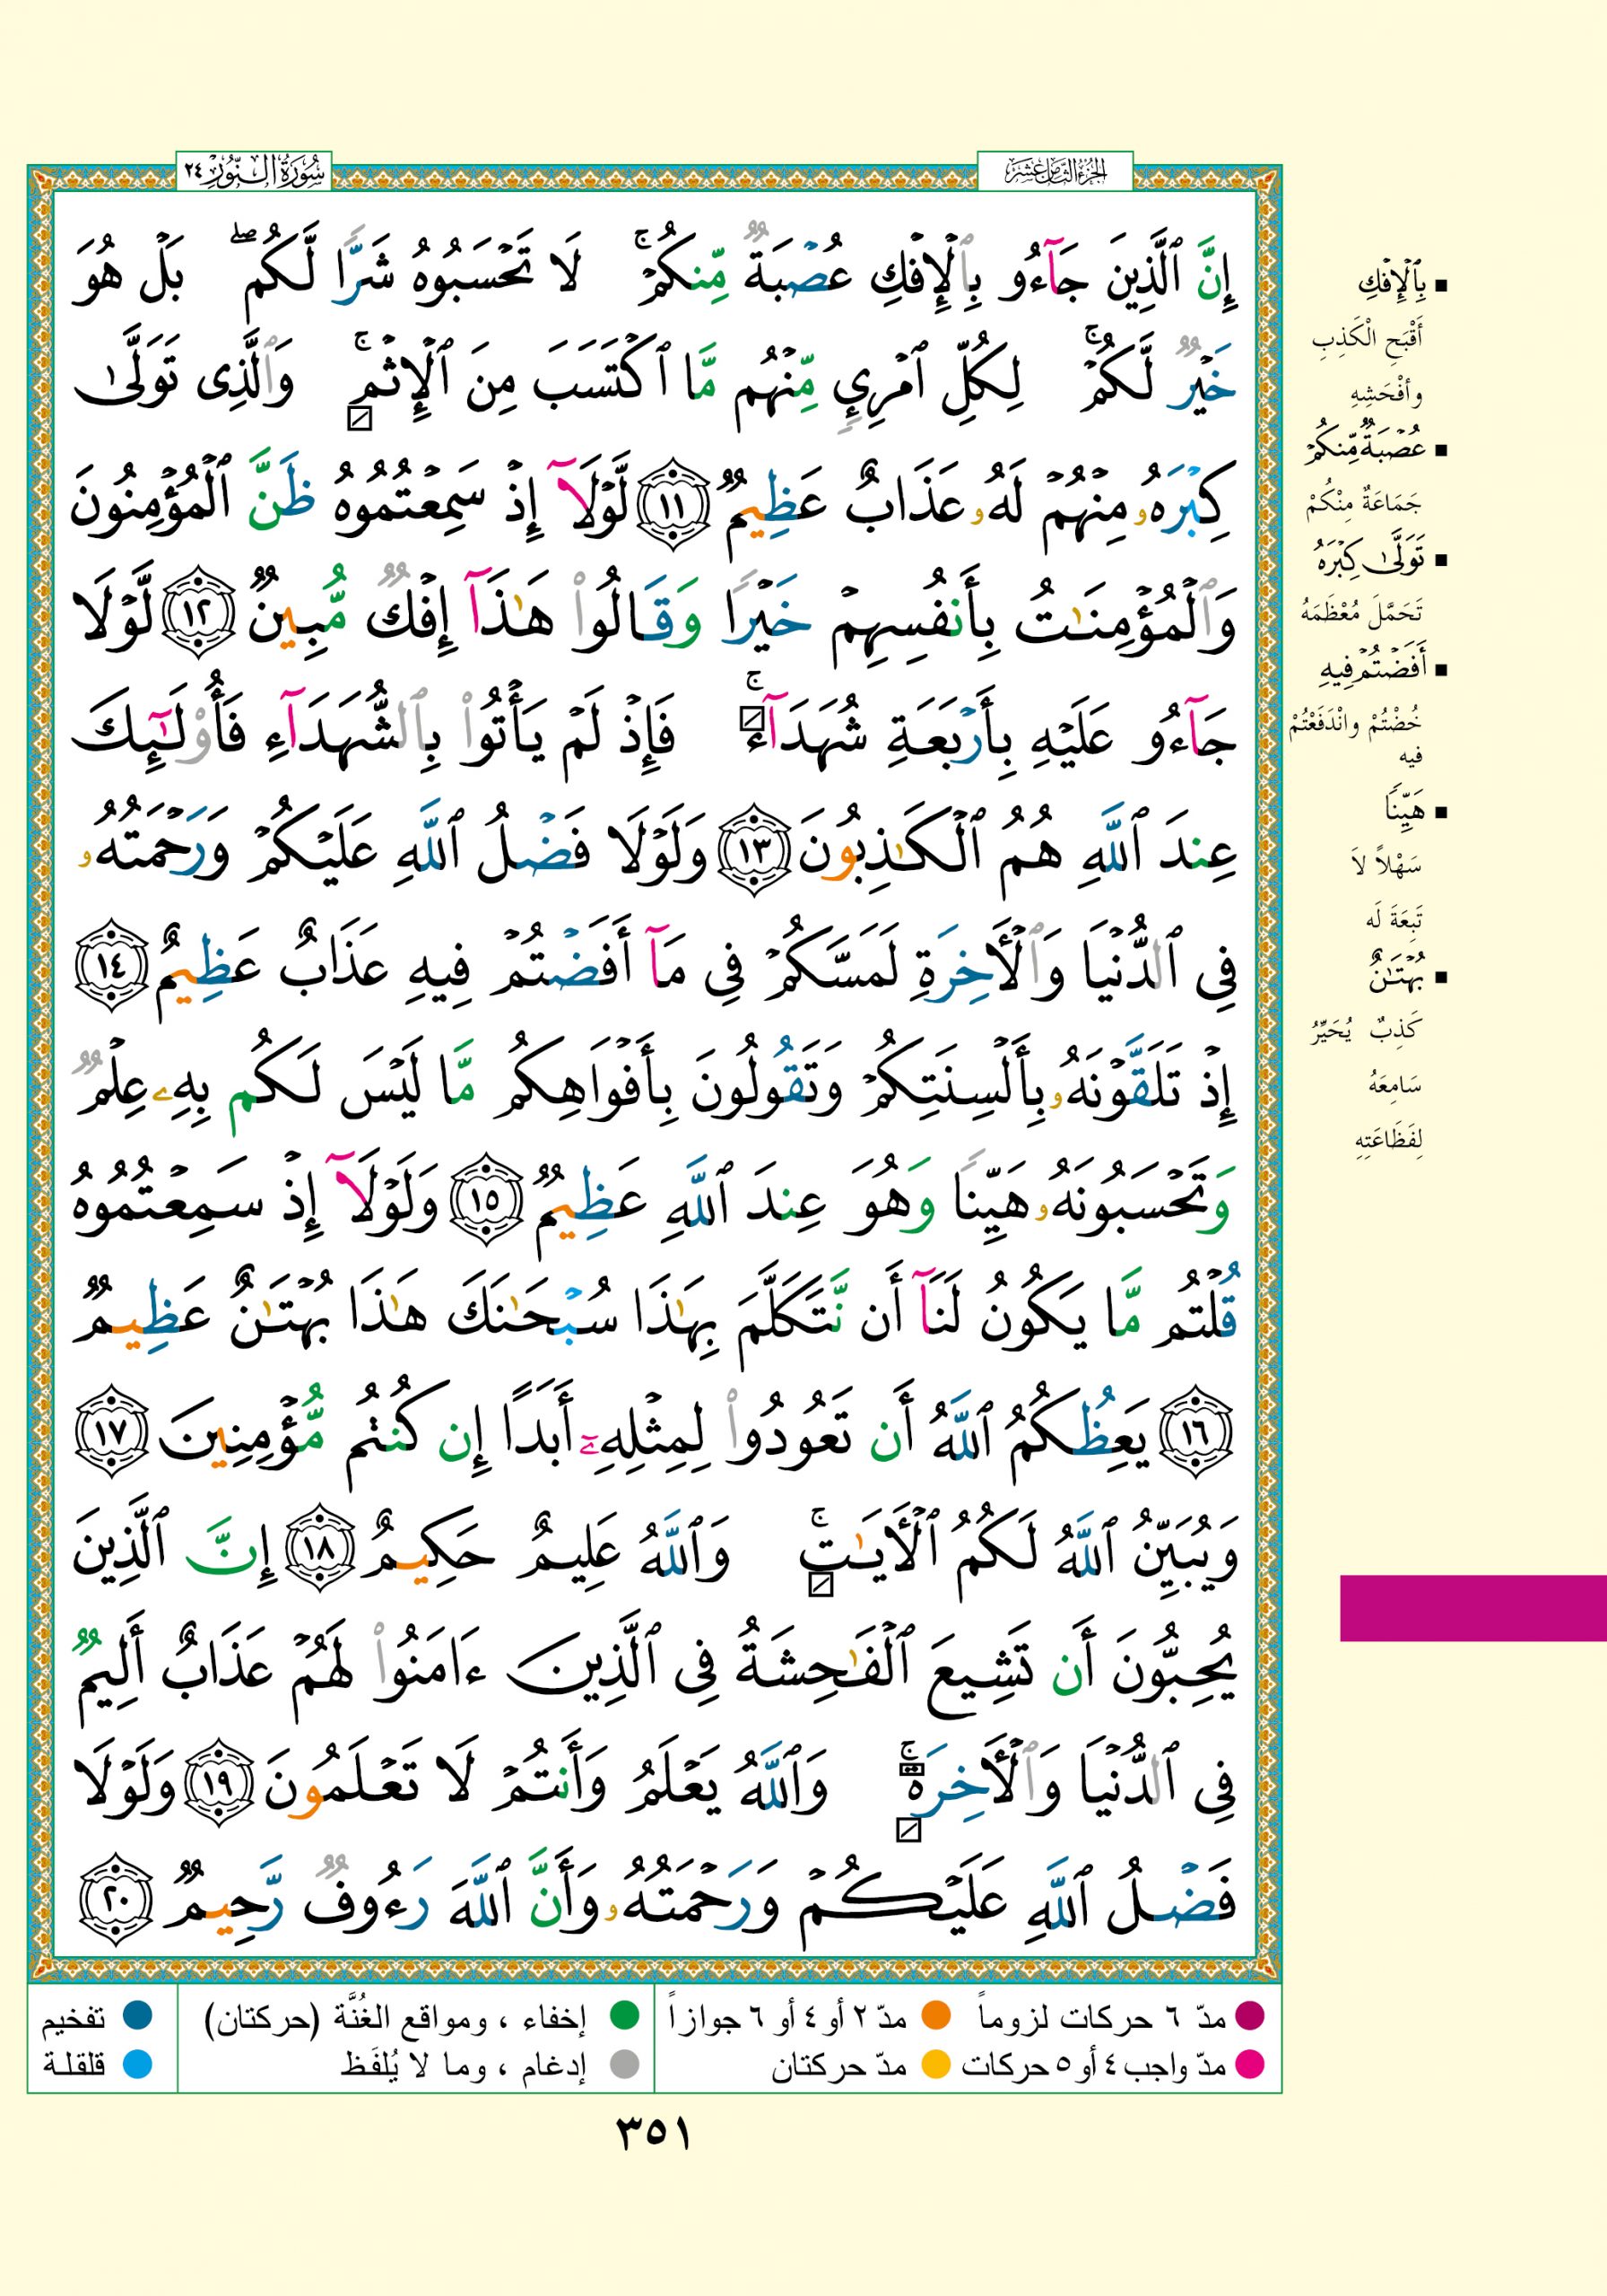 الجزء الثامن عشر
سورة النور ٢٤
إِنَّ ٱلَّذِينَ جَآءُو بِٱلْإِفْكِ عُصْبَةٌ مِّنكُمْ ۚ لَا تَحْسَبُوهُ شَرًّا لَّكُم ۖ بَلْ هُوَ
خَيْرٌ لَّكُمْ ۚ لِكُلِّ ٱمْرِئٍ مِّنْهُم مَّا ٱكْتَسَبَ مِنَ ٱلْإِثْمِ ۚ وَٱلَّذِى تَوَلَّىٰ
كِبْرَهُۥ مِنْهُمْ لَهُۥ عَذَابٌ عَظِيمٌ ١١ لَّوْلَآ إِذْ سَمِعْتُمُوهُ ظَنَّ ٱلْمُؤْمِنُونَ
وَٱلْمُؤْمِنَـٰتُ بِأَنفُسِهِمْ خَيْرًا وَقَالُوا۟ هَـٰذَآ إِفْكٌ مُّبِينٌ ١٢ لَّوْلَا
جَآءُو عَلَيْهِ بِأَرْبَعَةِ شُهَدَآءَ ۚ فَإِذْ لَمْ يَأْتُوا۟ بِٱلشُّهَدَآءِ فَأُو۟لَـٰٓئِكَ
عِندَ ٱللَّهِ هُمُ ٱلْكَـٰذِبُونَ ١٣ وَلَوْلَا فَضْلُ ٱللَّهِ عَلَيْكُمْ وَرَحْمَتُهُۥ
فِى ٱلدُّنْيَا وَٱلْـَٔاخِرَةِ لَمَسَّكُمْ فِى مَآ أَفَضْتُمْ فِيهِ عَذَابٌ عَظِيمٌ ١٤
إِذْ تَلَقَّوْنَهُۥ بِأَلْسِنَتِكُمْ وَتَقُولُونَ بِأَفْوَاهِكُم مَّا لَيْسَ لَكُم بِهِۦ عِلْمٌ
وَتَحْسَبُونَهُۥ هَيِّنًا وَهُوَ عِندَ ٱللَّهِ عَظِيمٌ ١٥ وَلَوْلَآ إِذْ سَمِعْتُمُوهُ
قُلْتُم مَّا يَكُونُ لَنَآ أَن نَّتَكَلَّمَ بِهَـٰذَا سُبْحَـٰنَكَ هَـٰذَا بُهْتَـٰنٌ عَظِيمٌ
١٦ يَعِظُكُمُ ٱللَّهُ أَن تَعُودُوا۟ لِمِثْلِهِۦٓ أَبَدًا إِن كُنتُم مُّؤْمِنِينَ ١٧
وَيُبَيِّنُ ٱللَّهُ لَكُمُ ٱلْـَٔايَـٰتِ ۚ وَٱللَّهُ عَلِيمٌ حَكِيمٌ ١٨ إِنَّ ٱلَّذِينَ
يُحِبُّونَ أَن تَشِيعَ ٱلْفَـٰحِشَةُ فِى ٱلَّذِينَ ءَامَنُوا۟ لَهُمْ عَذَابٌ أَلِيمٌ
فِى ٱلدُّنْيَا وَٱلْـَٔاخِرَةِ ۚ وَٱللَّهُ يَعْلَمُ وَأَنتُمْ لَا تَعْلَمُونَ ١٩ وَلَوْلَا
فَضْلُ ٱللَّهِ عَلَيْكُمْ وَرَحْمَتُهُۥ وَأَنَّ ٱللَّهَ رَءُوفٌ رَّحِيمٌ ٢٠
بِٱلْإِفْكِ
أَقْبَحِ الْكَذِبِ
وأفْحَشِهِ
عُصْبَةٌ مِّنكُمْ
جَمَاعَةٌ مِنْكُمْ
تَوَلَّىٰ كِبْرَهُ
تَحَمَّلَ مُعْظَمَهُ
أَفَضْتُمْ فِيهِ
خُضْتُمْ وانْدَفَعْتُمْ
فيه
هَيِّنًا
سَهْلاً لاَ
تَبِعَةَ لَه
بُهْتَـٰنٌ
كَذِبٌ يُحَيِّرُ
سَامِعَهُ
لِفَظَاعَتِهِ
مدّ ٦ حركات لزوماً
مدّ ٢ أو ٤ أو ٦ جوازاً
إخفاء ، ومواقع الغُنَّة (حركتان)
تفخيم
مدّ واجب ٤ أو ٥ حركات
مدّ حركتان
إدغام ، وما لا يُلفَظ
قلقلة
٣٥١